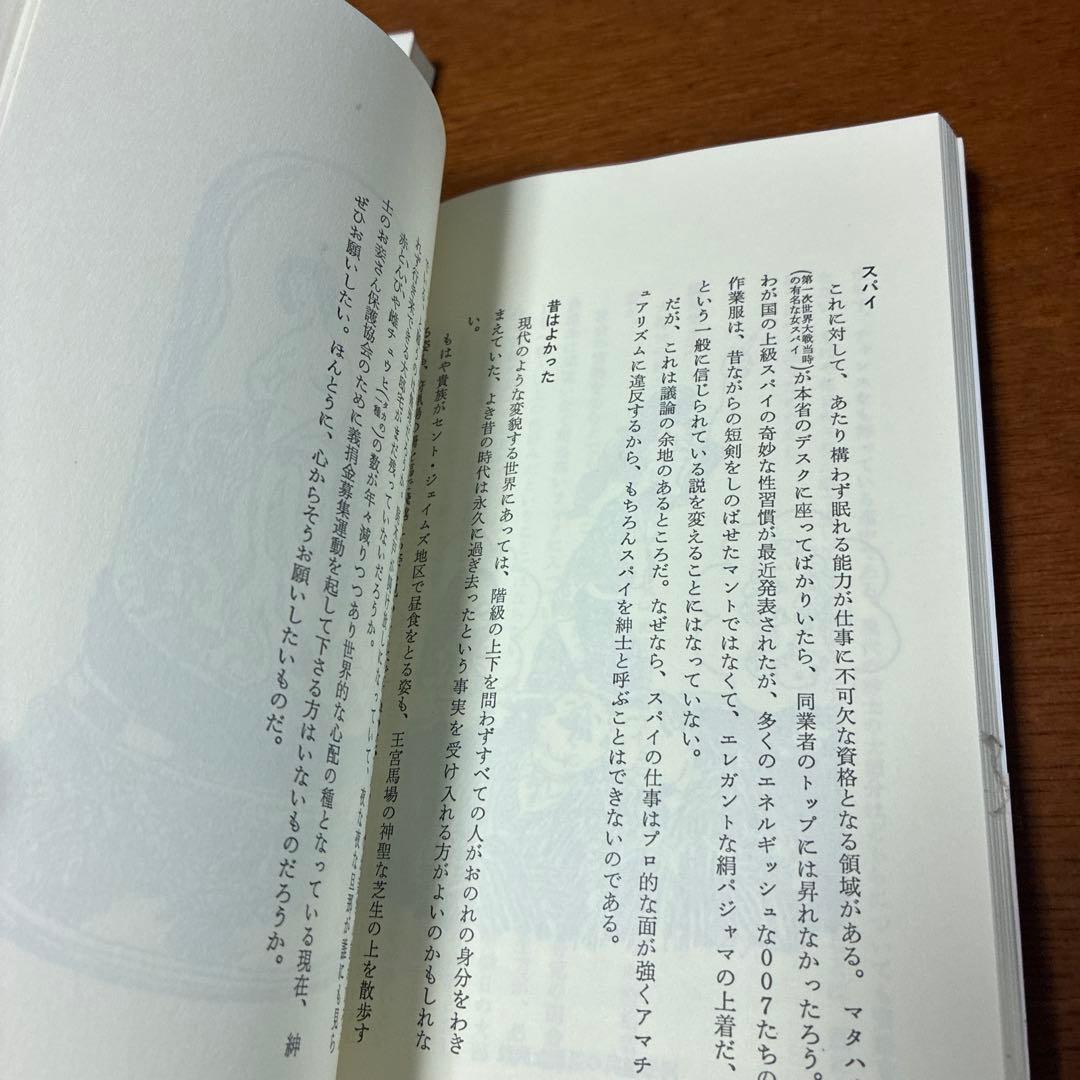 スパイ
これに対して、あたり構わず眠れる能力が仕事に不可欠な資格となる領域がある。マタハ
(第一次世界大戦当時の有名な女スパイ)が本省のデスクに座ってばかりいたら、同業者のトップには昇れなかったろう。
わが国の上級スパイの奇妙な性習慣が最近発表されたが、多くのエネルギッシュな007たちの
作業服は、昔ながらの短剣をしのばせたマントではなくて、エレガントな絹パジャマの上着だ、
という一般に信じられている説を変えることにはなっていない。
だが、これは議論の余地のあるところだ。なぜなら、スパイの仕事はプロ的な面が強くアマチ
ュアリズムに違反するから、もちろんスパイを紳士と呼ぶことはできないのである。
昔はよかった
現代のような変貌する世界にあっては、階級の上下を問わずすべての人がおのれの身分をわき
まえていた、よき昔の時代は永久に過ぎ去ったという事実を受け入れる方がよいのかもしれな
い。
もはや貴族がセント・ジェイムズ地区で昼食をとる姿も、王宮馬場の神聖な芝生の上を散歩す
赤とんびや雌チュウヒ(タカの一種)の数が年々減りつつあり世界的な心配の種となっている現在、紳
士のお妾さん保護協会のために義捐金募集運動を起して下さる方はいないものだろうか。
ぜひお願いしたい。ほんとうに、心からそうお願いしたいものだ。